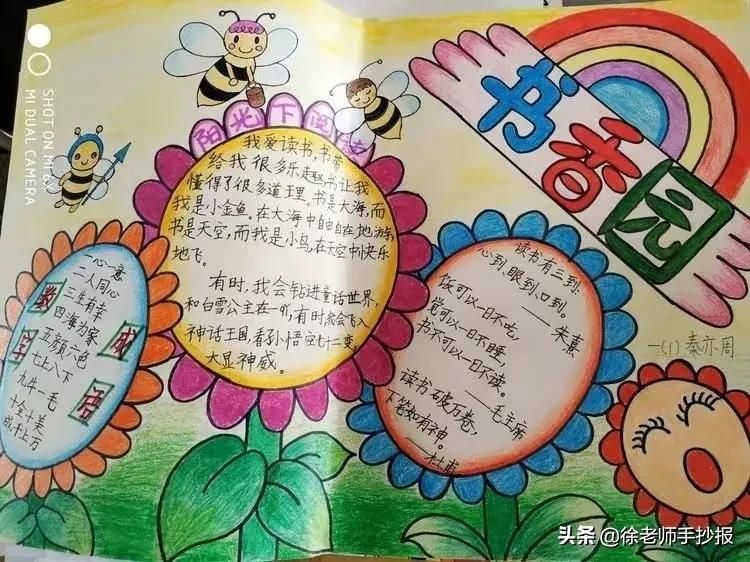 SHOT ON MI 6X
MI DUAL CAMERA
书香园
阳光下阅读
我爱读书,书带
给我很多乐趣,书让我
懂得了很多道理。书是大海,而
我是小金鱼。在大海中自由在地游,
书是天空,而我是小鸟,在天空中快乐
地飞。
有时,我会钻进童话世界,
和白雪公主在一听,有时就会飞入
神话王国,看孙悟空七十二变,
大显神威。
数字成语
一心一意
二人同心
三生有幸
四海为家
五颜六色
七上八下
九牛一毛
十全十美
成千上万
读书有三到:
心到,眼到,口到。
——朱熹
饭可以一日不吃,
觉可以一日不睡,
书不可以一日不读。
——毛主席
读书破万卷,
下笔如有神。
——杜甫
一(1)秦亦周
头条@徐老师手抄报